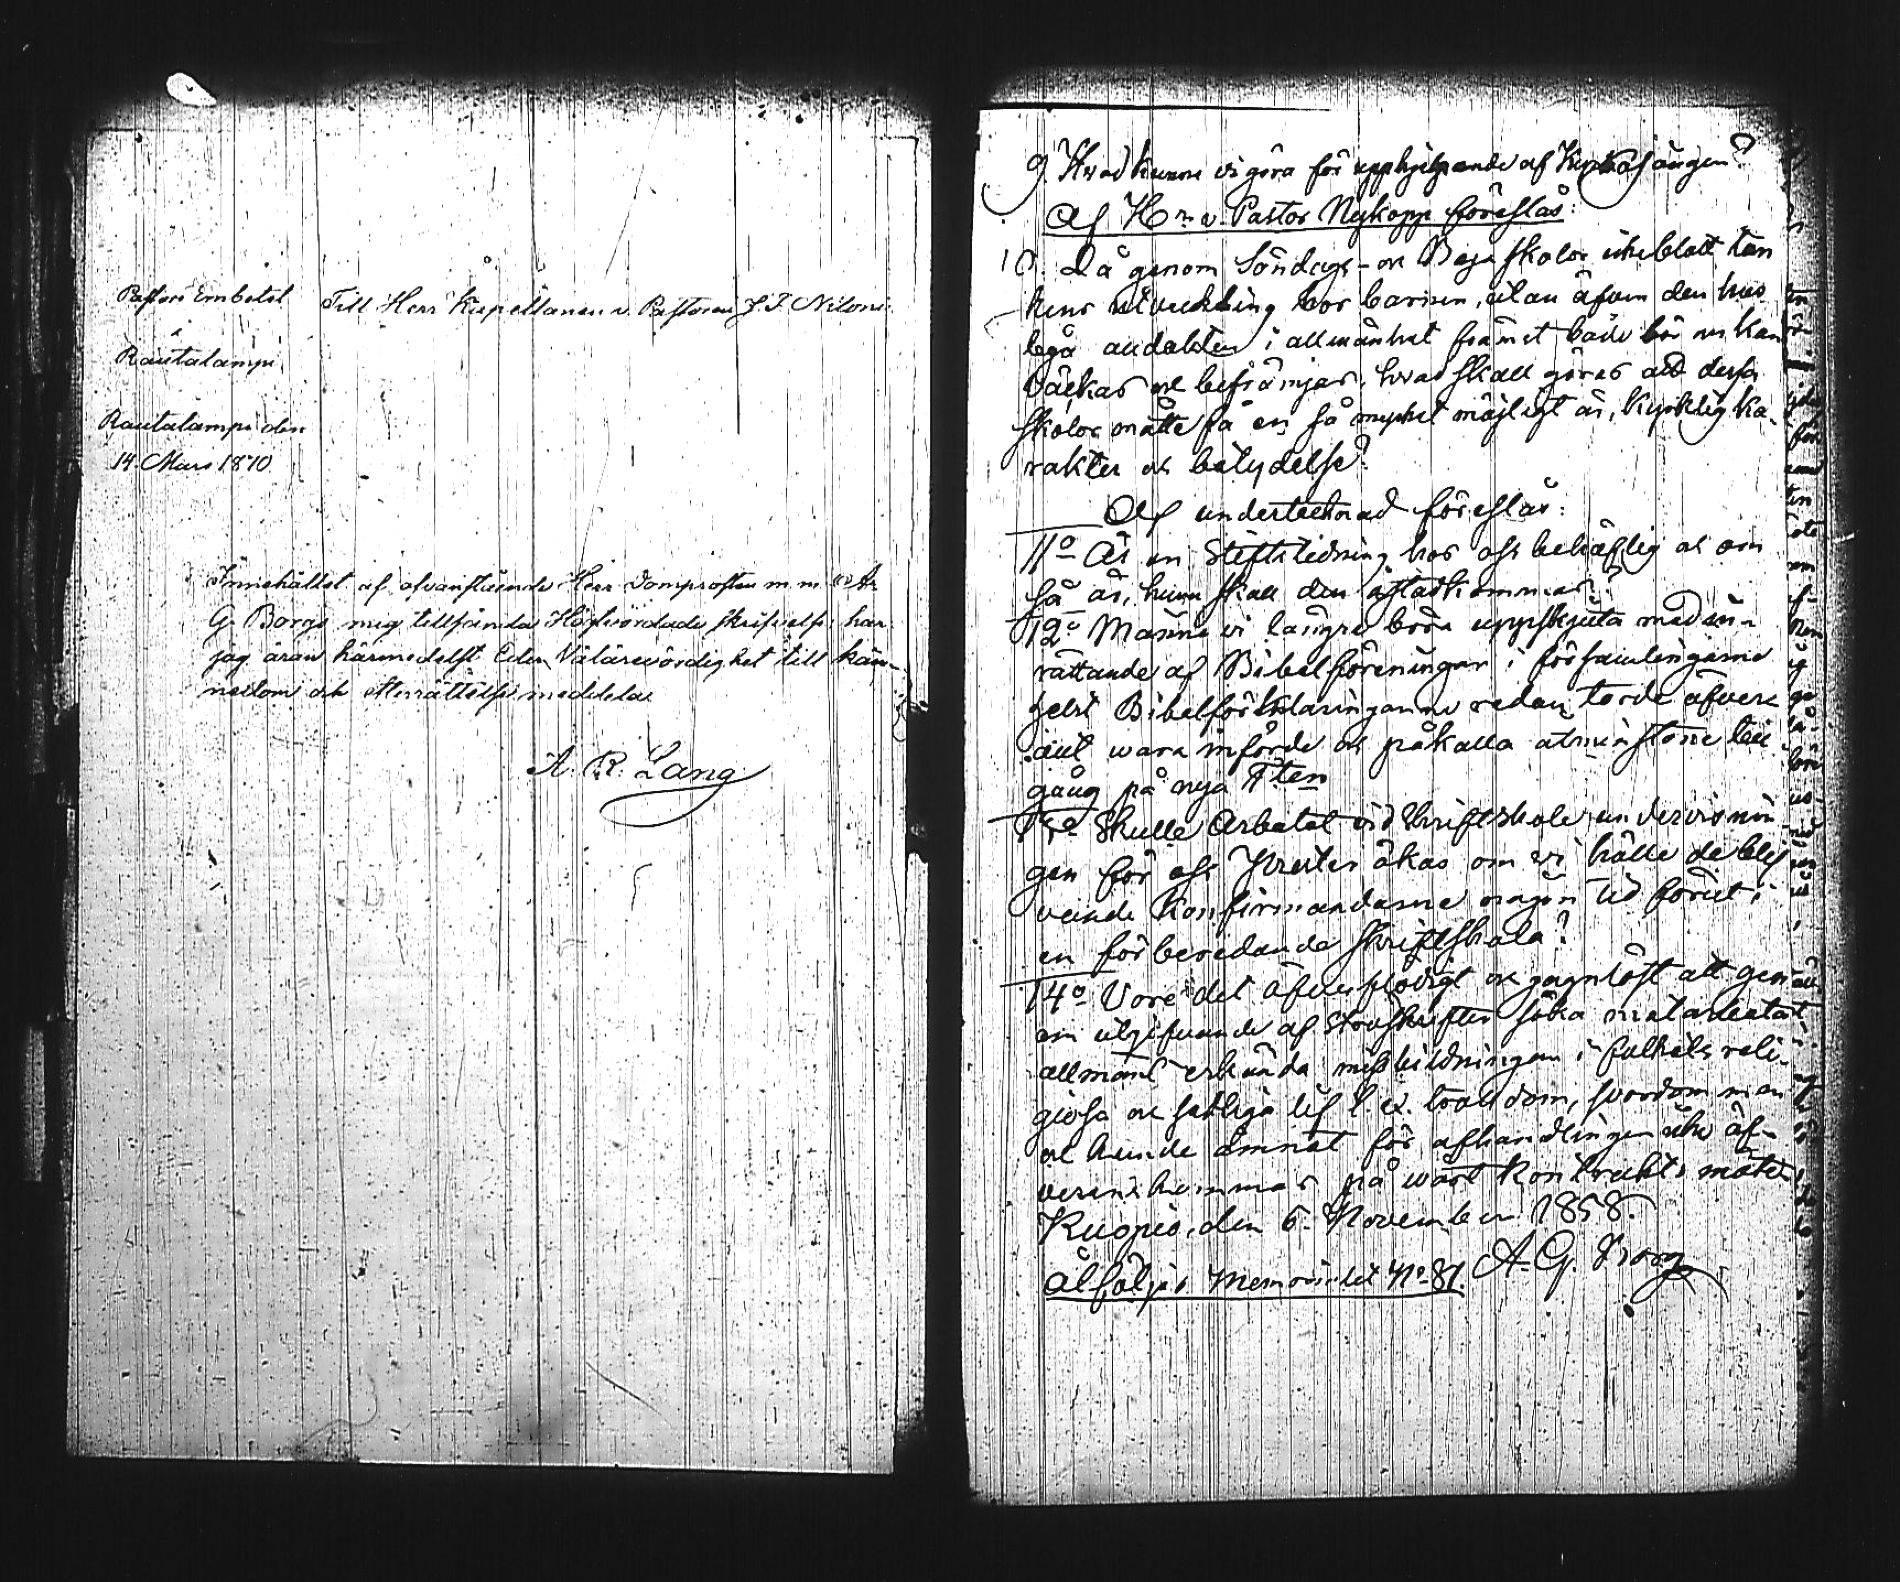 Pastors Embetet
i
Rautalampi
Rautalampi den
14 Mars 1870
Till Herr Kapellanen v. Pastoren J. F.
Innehållet af ofvanstående Herr Domprosten m. m. A.
G. Borgs mig tillsända Högvördade skrifvelse, har
jag äran härmedelst Eder Välärevördighet till kän-
nedom och efterrättelse meddela.
A. R. Lang
9. Hvad kunna vi göra för upphjelpande af Kyrkosången?
Af H v. Pastor Nykopp föreslås:
10. Då genom Söndags- och Byaskolor icke blott tan
kens utveckling hos barnen, utan äfven den hus
liga andakten i allmänhet främst både bör och kan
väckas och befrämjas, hvad skall göras att dessa
skolor måtte få en så mycket möjligt är, kyrklig ka-
rakter och betydelse?
Af undertecknad föreslås:
11o Är en Stiftstidning hos oss behöflig och om
så är, huru skall den åstadkommas?
12o Månne vi längre böra uppskjuta med in-
rättande af Bibelföreningar i församlingarne
helst Bibelförklaringarne redan torde äfven
vara införde och påkalla åtminstone till
gång på nya T.ten
13o Skulle Arbetet vid Skriftskole undervisnin
gen för oss Prester ökas om vi hålle de blif
vande Konfirmandarne någon tid förut i
en förberedande skriftskola?
14o Vore det öfverflödigt och gagnlöst att gen
om utgifvande af Ströskrifter söka motarbeta
allmänt erkända missbildningar i folkets reli-
giösa och sedliga lif t. ex. svordom m. m.
och kunde ämnet för afhandlingen icke öf-
verenskommas på wårt Kontrakts möte
Kuopio, den 6. November 1858.
A. G. Borg
Åtföljes Memorialet No 81.